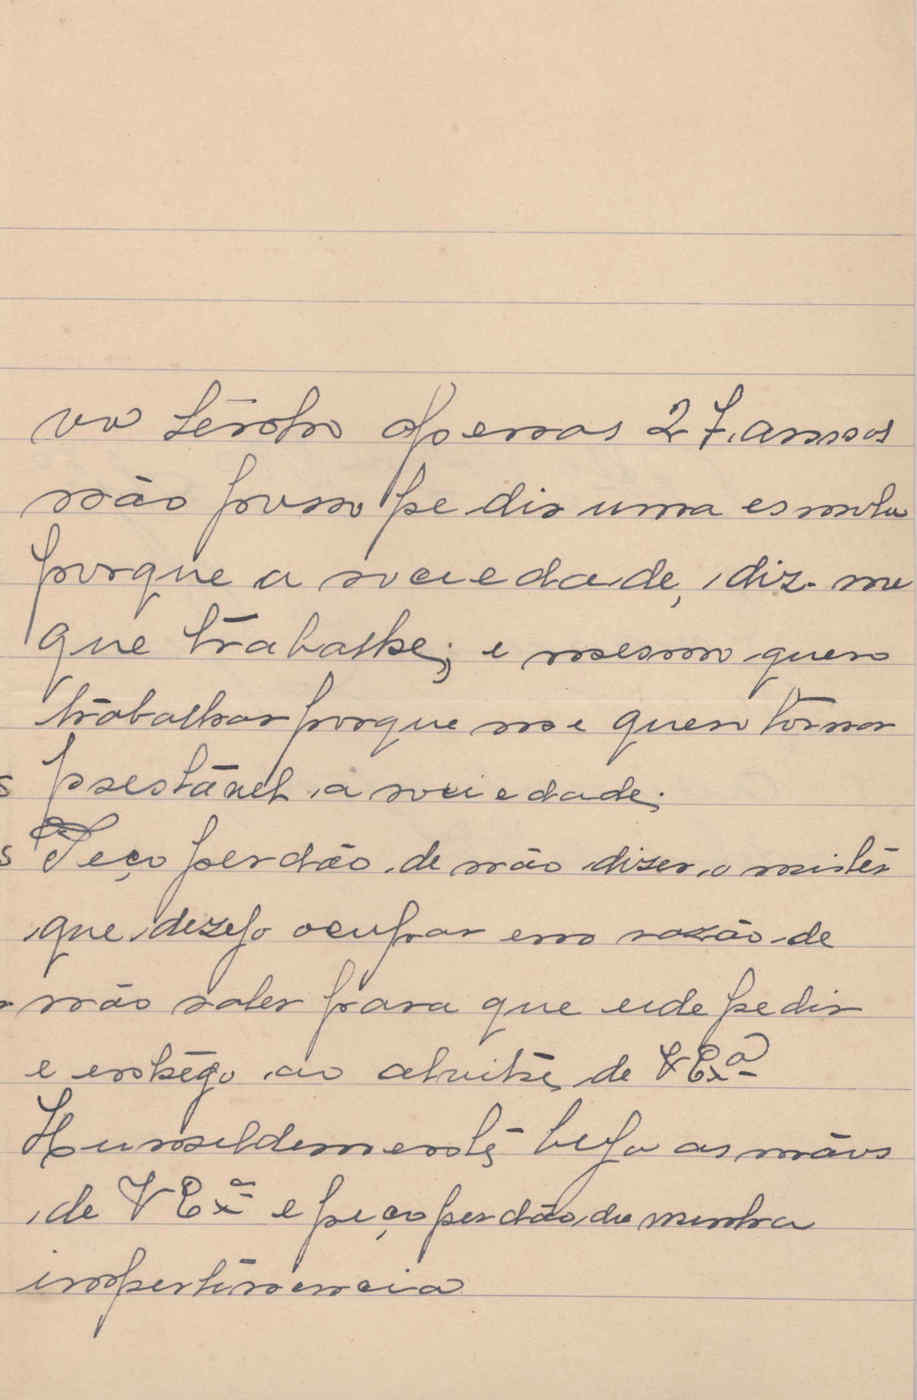 vo tenho apenas 27 annos
não posso pedir uma esmola
porque a sociedade, diz-me
que trabalhe; e mesmo quero
trabalhar porque me quero tornar
prestável a sociedade;
Peço perdão de não dizer o mistér
que dezejo ocupar em razão de
não saber para que eide pedir
e entrego ao alvitre de V Exª
Humildemente beijo as mãos
de V Exª e peço perdão da minha
impertinencia